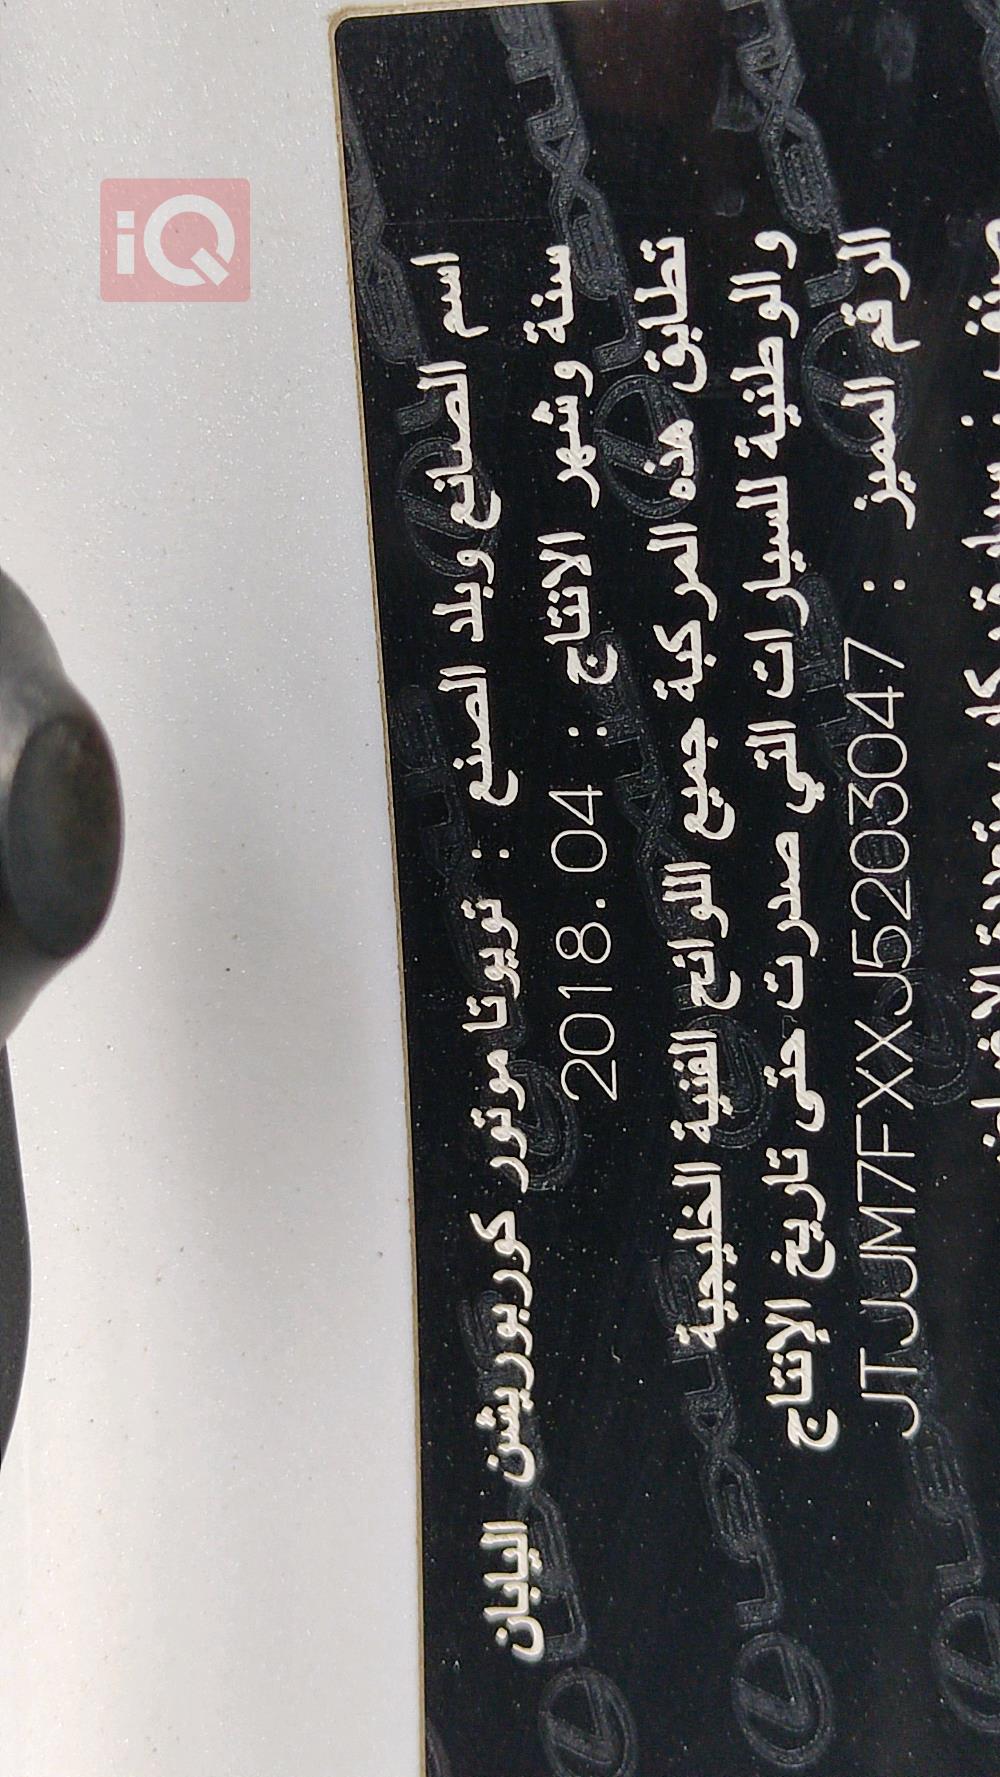 iQ
اسم الصانع وبلد الصنع : تويوتا موتور كوربوريشن اليابان
سنة وشهر الانتاج : 2018.04
تطابق هذه المركبة جميع اللوائح الفنية الخليجية
والوطنية للسيارات التي صدرت حتى تاريخ الإنتاج
الرقم المميز : JTJJM7FXXJ5203047